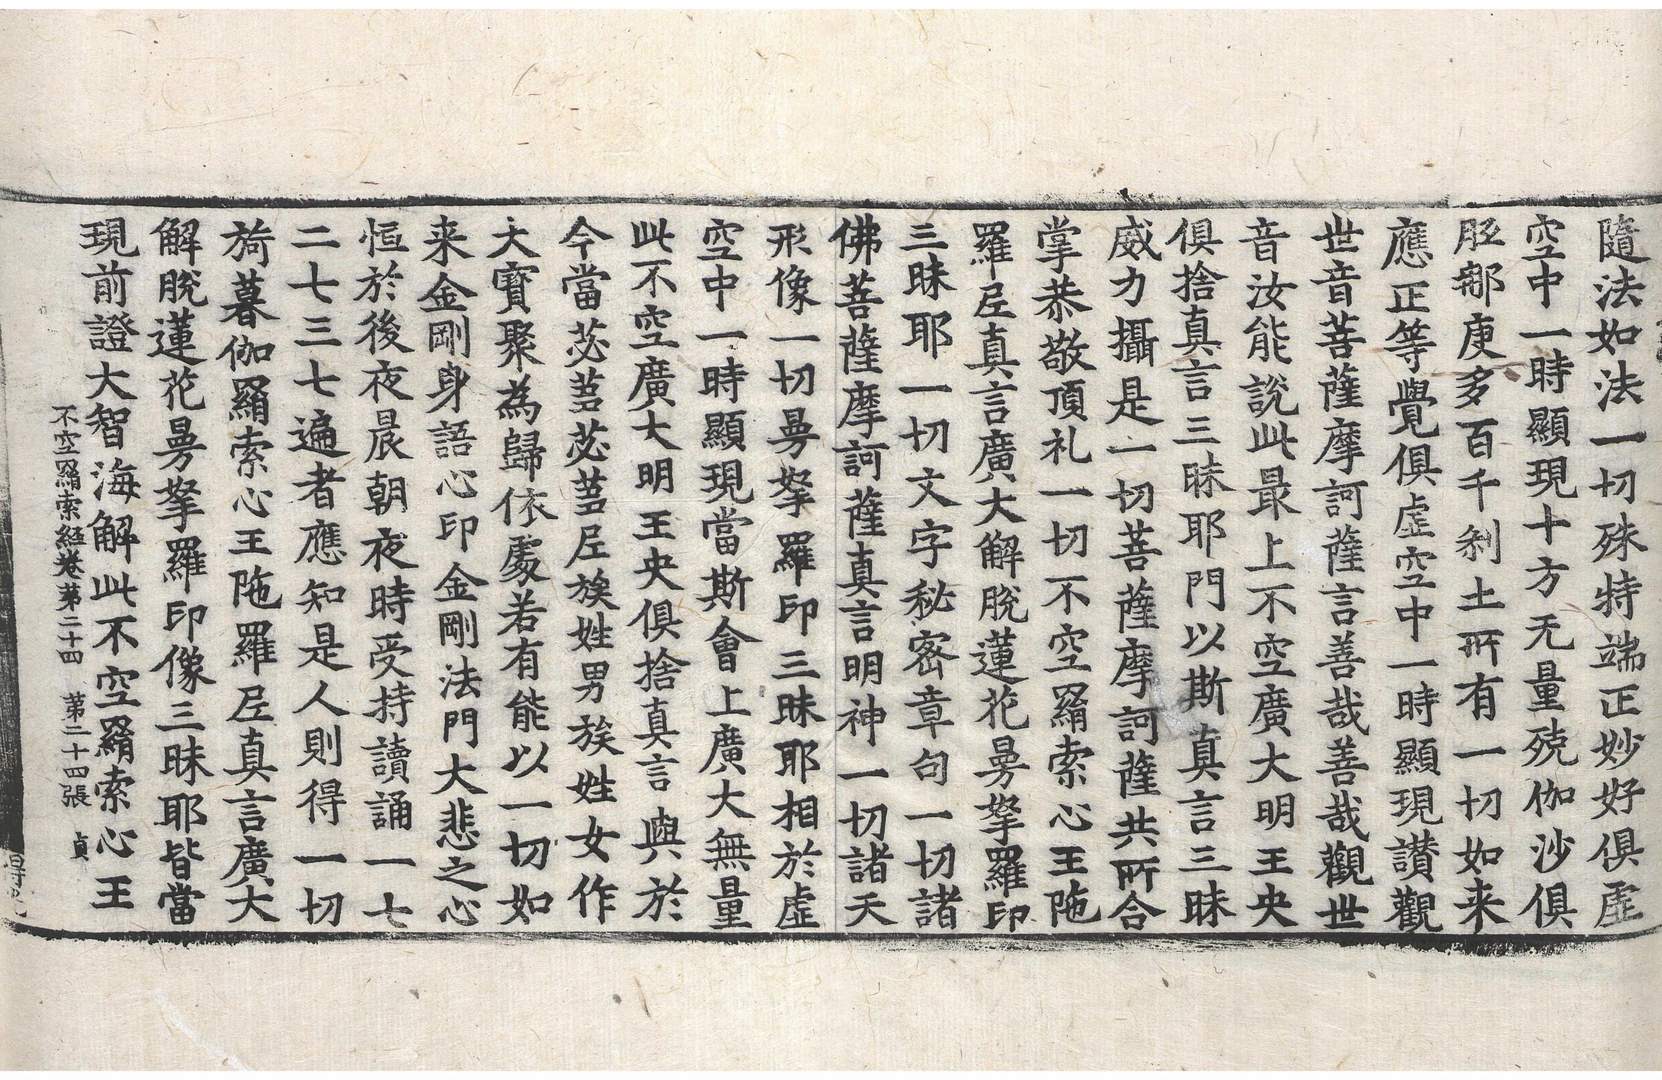 隨法如法一切殊特端正妙好俱虛
空中一時顯現十方无量殑伽沙俱
胝那庾多百千刹土所有一切如来
應正等覺俱虛空中一時顯現讃觀
世音菩薩摩訶薩言善哉善哉觀世
音汝能說此最上不空廣大明王央
俱捨真言三昧耶門以斯真言三昧
威力攝是一切菩薩摩訶薩共所合
掌恭敬頂礼一切不空羂索心王陁
羅尼真言廣大解脫蓮花曼拏羅印
三昧耶一切文字秘密章句一切諸
佛菩薩摩訶薩真言明神一切諸天
形像一切曼拏羅印三昧耶相於虛
空中一時顯現當斯會上廣大無量
此不空廣大明王央俱捨真言與於
今當苾蒭苾蒭尼族姓男族姓女作
大寶聚為歸依處若有能以一切如
来金剛身語心印金剛法門大悲之心
恒於後夜晨朝夜時受持讀誦一七
二七三七遍者應知是人則得一切
旖暮伽羂索心王陁羅尼真言廣大
解脫蓮花曼拏羅印像三昧耶皆當
現前證大智海解此不空羂索心王
不空羂索經卷第二十四 第二十四張 貞